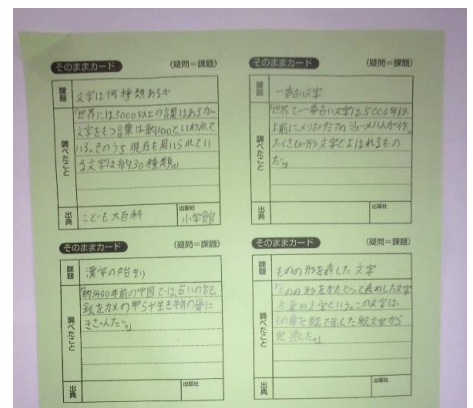 そのままカード (疑問=課題)
課題 文字は何種類あるか
調べたこと
「世界には5000以上の言葉はあるが
文字をもつ言葉は約100といわれて
いる。そのうち現在も用いられてい
る文字は約30種類。」
出典 こども大百科 出版社 小学館
そのままカード (疑問=課題)
課題 一番古い文字
調べたこと
「世界で一番古い文字は5000年以
上前にメソポタミアのシュメール人が作っ
たくさび形文字とよばれるもの
だ。」
出典 出版社
そのままカード (疑問=課題)
課題 漢字の始まり
調べたこと
「約3400年前の中国では、占いの記
録をカメの甲らや生き物の骨に
きざんだ。」
出典 出版社
そのままカード (疑問=課題)
課題 ものの形を表した文字
調べたこと
「ものの形をかたどって表めした文字
を象形文字という。この文字は、
絵で示した絵文字から
発達した。」
出典 出版社